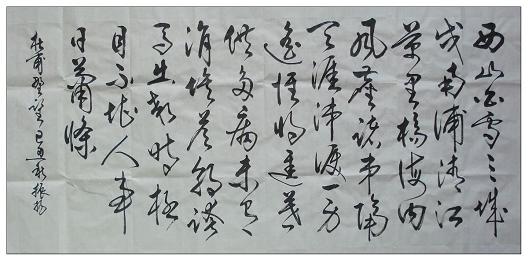 西山白雪三城
戍南浦清江
萬里橋海内
風塵諸弟隔
天涯涕淚一身
遙惟將遲暮
供多病未有
涓埃答聖朝跨
馬出郊時極
目不堪人事
日蕭條
杜甫野望 己丑秋 振